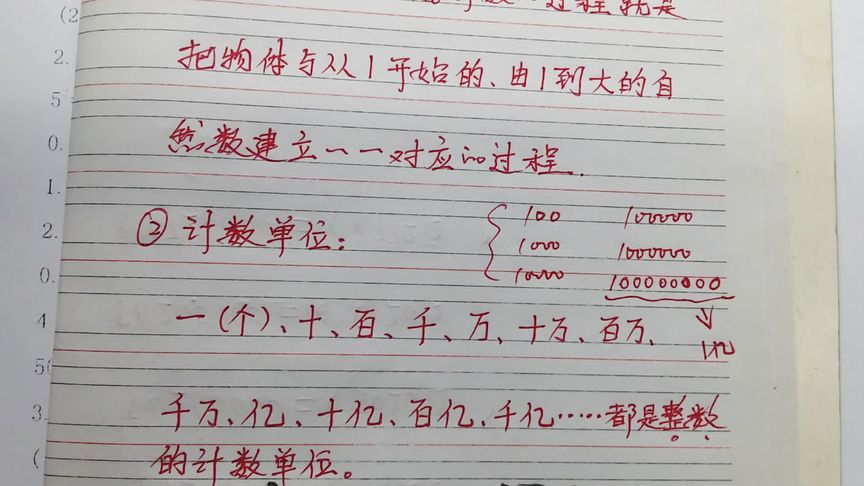 过程就是
把物体与从1开始的、由1到大的自
然数建立一一对应的过程.
② 计数单位:
100 100000
1000 1000000
10000 100000000
1亿
一(个)、十、百、千、万、十万、百万、
千万、亿、十亿、百亿、千亿……都是整数
的计数单位。
(2
2.
5
0.
1.
2.
0.
4
50
3.
(